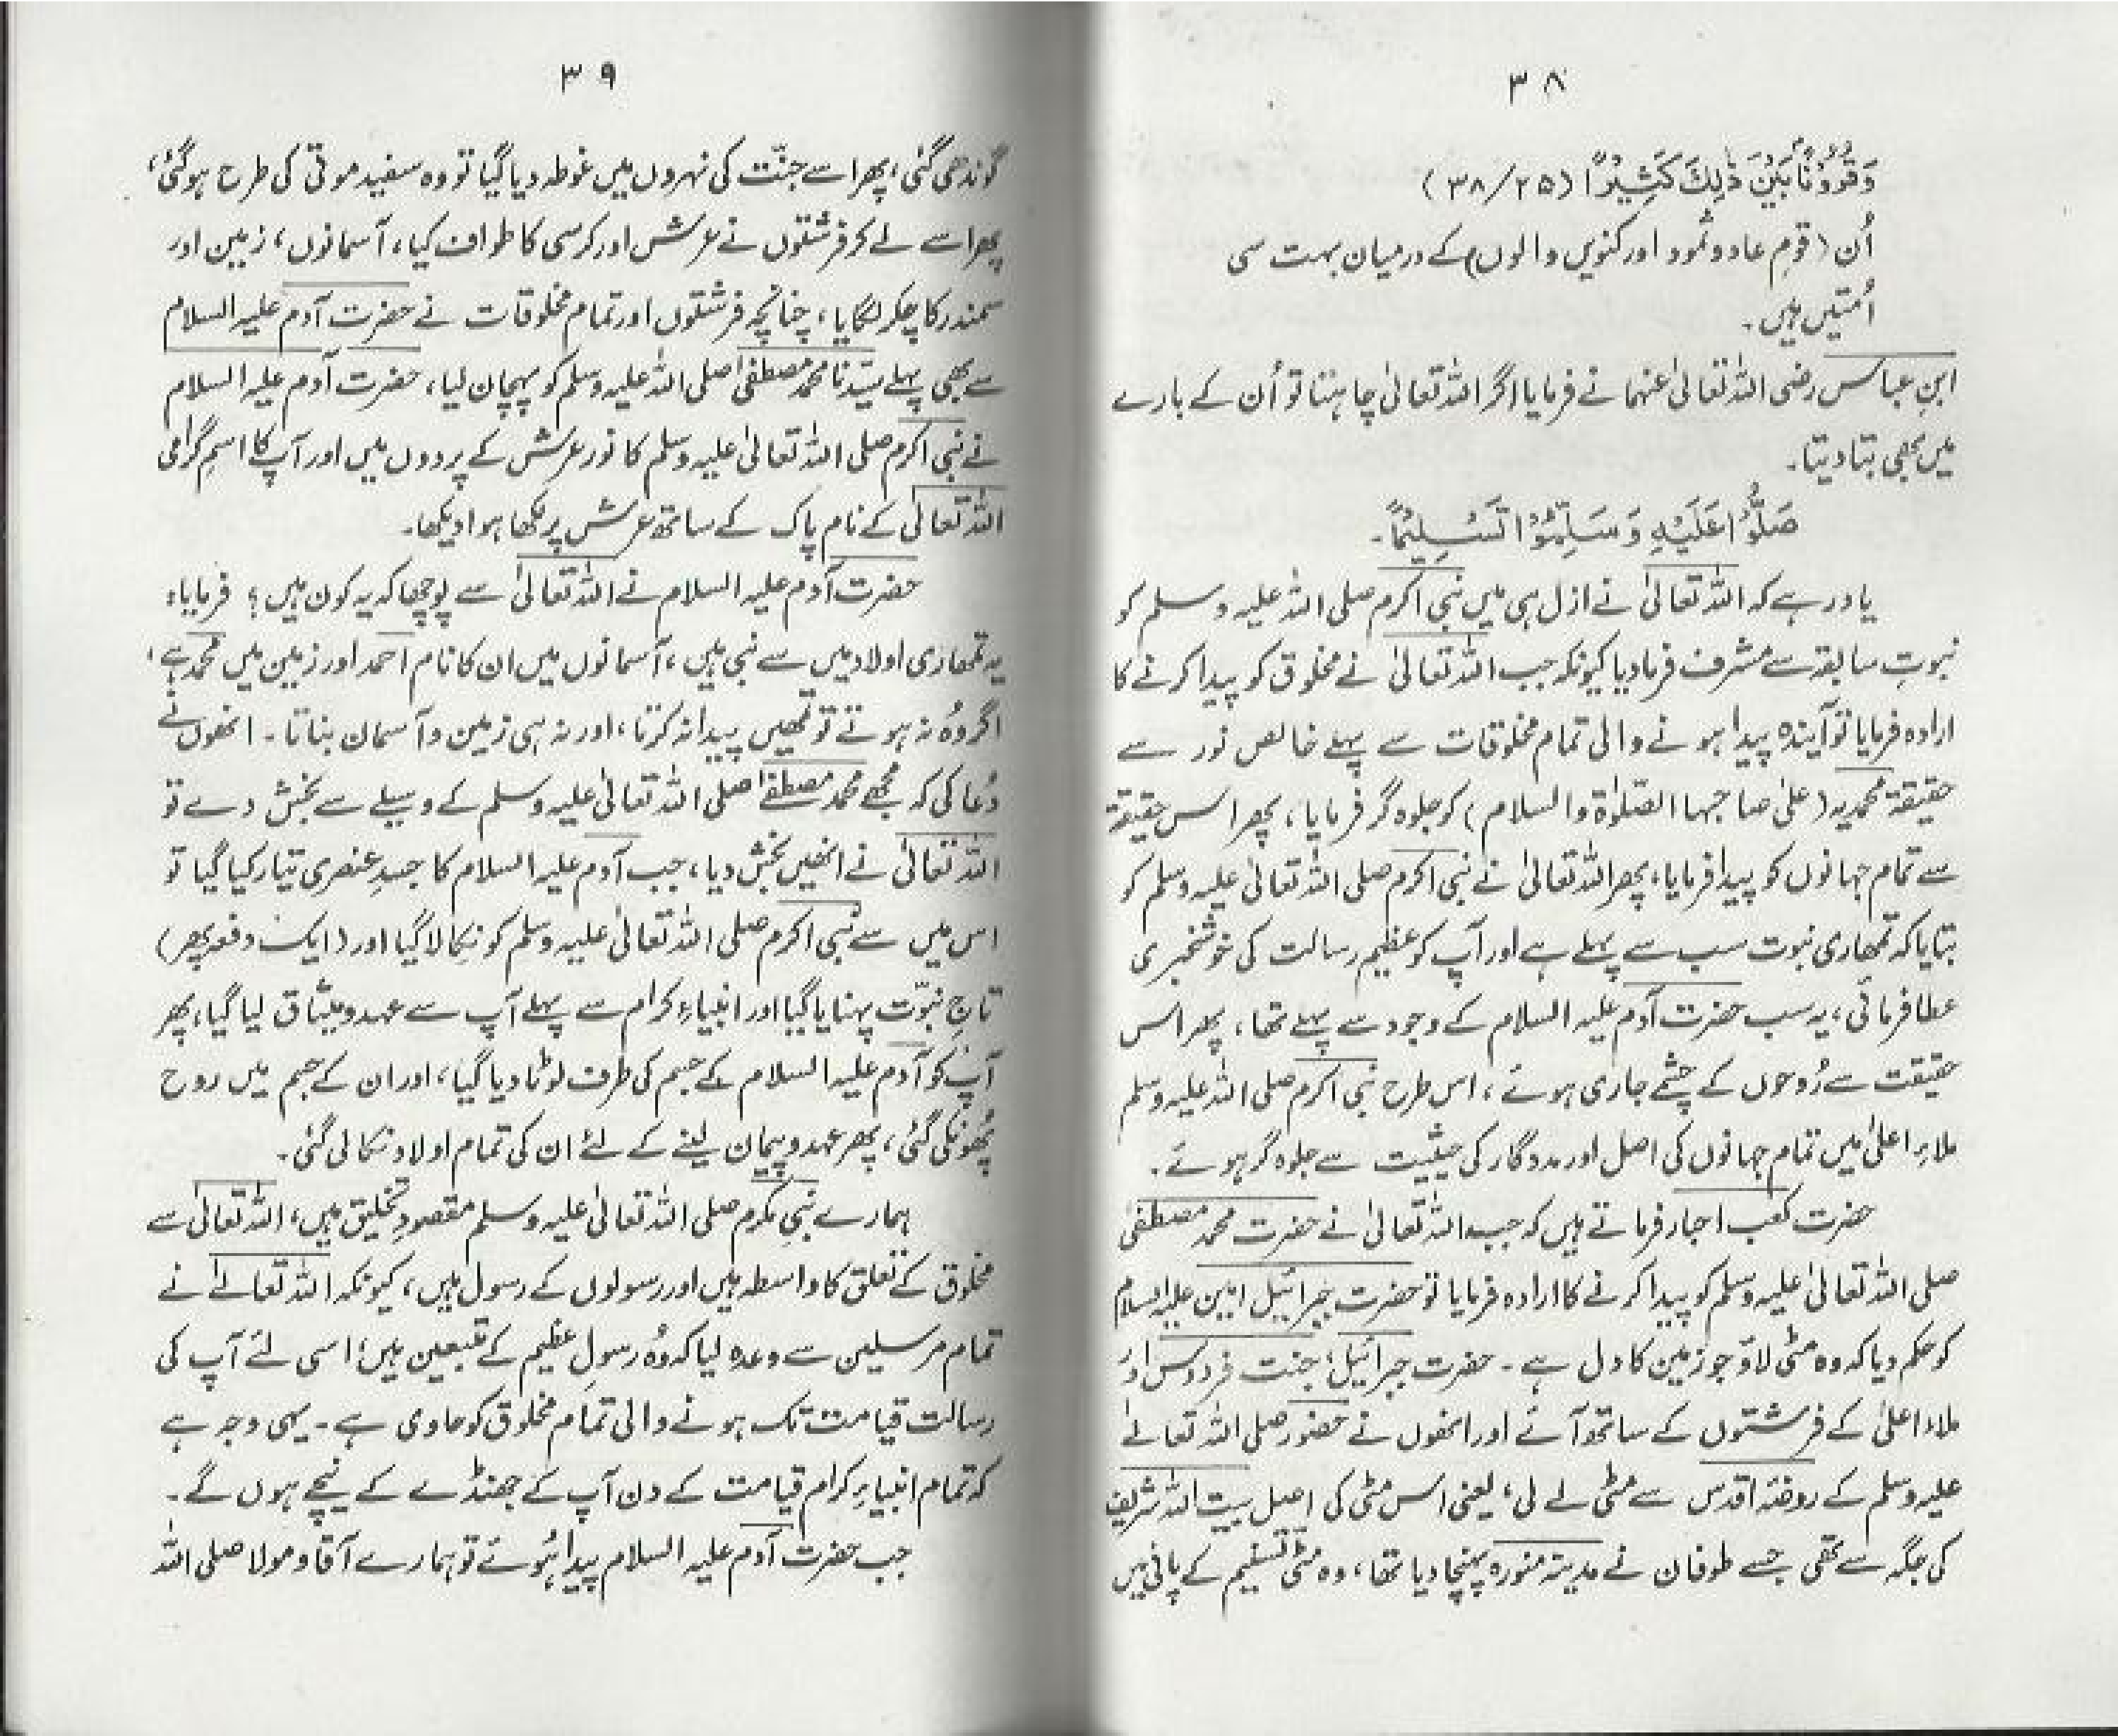 ۳۸
وَقُرُوْنًا بَيْنَ ذٰلِكَ كَثِيْرًا (۳۸/۲۵)
اُن (قومِ عاد و ثمود اور کنویں والوں) کے درمیان بہت سی
اُمتیں ہیں۔
ابنِ عباس رضی اللہ تعالیٰ عنہما نے فرمایا اگر اللہ تعالیٰ چاہتا تو اُن کے بارے
میں بھی بتا دیتا۔
صَلُّوْا عَلَيْهِ وَسَلِّمُوْا تَسْلِيْمًا۔
یاد رہے کہ اللہ تعالیٰ نے ازل ہی میں نبی اکرم صلی اللہ علیہ وسلم کو
نبوتِ سابقہ سے مشرف فرما دیا کیونکہ جب اللہ تعالیٰ نے مخلوق کو پیدا کرنے کا
ارادہ فرمایا تو آیندہ پیدا ہونے والی تمام مخلوقات سے پہلے خالص نور سے
حقیقۃ محمدیہ (علیٰ صاحبہا الصّلوٰۃ والسلام) کو جلوہ گر فرمایا، پھر اس حقیقۃ
سے تمام جہانوں کو پیدا فرمایا، پھر اللہ تعالیٰ نے نبی اکرم صلی اللہ تعالیٰ علیہ وسلم کو
بتایا کہ تمھاری نبوت سب سے پہلے ہے اور آپ کو عظیم رسالت کی خوشخبری
عطا فرمائی، یہ سب حضرت آدم علیہ السلام کے وجود سے پہلے تھا، پھر اس
حقیقت سے رُوحوں کے چشمے جاری ہوئے، اس طرح نبی اکرم صلی اللہ علیہ وسلم
ملاءِ اعلیٰ میں تمام جہانوں کی اصل اور مددگار کی حیثیت سے جلوہ گر ہوئے۔
حضرت کعب احبار فرماتے ہیں کہ جب اللہ تعالیٰ نے حضرت محمد مصطفیٰ
صلی اللہ تعالیٰ علیہ وسلم کو پیدا کرنے کا ارادہ فرمایا تو حضرت جبرائیل امین علیہ السلام
کو حکم دیا کہ وہ مٹی لاؤ جو زمین کا دل ہے۔ حضرت جبرائیل، جنت فردوس اور
ملاء اعلیٰ کے فرشتوں کے ساتھ آئے اور انھوں نے حضور صلی اللہ تعالےٰ
علیہ وسلم کے روضۂ اقدس سے مٹی لے لی، یعنی اس مٹی کی اصل بیت اللہ شریف
کی جگہ سے تھی جسے طوفان نے مدینہ منورہ پہنچا دیا تھا، وہ مٹی تسنیم کے پانی میں
۳۹
گوندھی گئی، پھر اسے جنّت کی نہروں میں غوطہ دیا گیا تو وہ سفید موتی کی طرح ہو گئی،
پھر اسے لے کر فرشتوں نے عرش اور کرسی کا طواف کیا، آسمانوں، زمین اور
سمندر کا چکر لگایا، چنانچہ فرشتوں اور تمام مخلوقات نے حضرت آدم علیہ السلام
سے بھی پہلے سیّدنا محمد مصطفیٰ صلی اللہ علیہ وسلم کو پہچان لیا، حضرت آدم علیہ السلام
نے نبی اکرم صلی اللہ تعالیٰ علیہ وسلم کا نور عرش کے پردوں میں اور آپ کا اسمِ گرامی
اللہ تعالیٰ کے نام پاک کے ساتھ عرش پر لکھا ہوا دیکھا۔
حضرت آدم علیہ السلام نے اللہ تعالیٰ سے پوچھا کہ یہ کون ہیں؟ فرمایا:
یہ تمھاری اولاد میں سے نبی ہیں، آسمانوں میں ان کا نام احمد اور زمین میں محمد ہے،
اگر وُہ نہ ہوتے تو تمھیں پیدا نہ کرتا، اور نہ ہی زمین و آسمان بناتا۔ انھوں نے
دُعا کی کہ مجھے محمد مصطفےٰ صلی اللہ تعالیٰ علیہ وسلم کے وسیلے سے بخش دے تو
اللہ تعالیٰ نے انھیں بخش دیا، جب آدم علیہ السلام کا جسدِ عنصری تیار کیا گیا تو
اس میں سے نبی اکرم صلی اللہ تعالیٰ علیہ وسلم کو نکالا گیا اور (ایک دفعہ پھر)
تاجِ نبوّت پہنایا گیا اور انبیاءِ کرام سے پہلے آپ سے عہد و میثاق لیا گیا، پھر
آپ کو آدم علیہ السلام کے جسم کی طرف لوٹا دیا گیا، اور ان کے جسم میں روح
پُھونکی گئی، پھر عہد و پیمان لینے کے لئے ان کی تمام اولاد نکالی گئی۔
ہمارے نبیِ مکرم صلی اللہ تعالیٰ علیہ وسلم مقصودِ تخلیق ہیں، اللہ تعالیٰ سے
مخلوق کے تعلق کا واسطہ ہیں اور رسولوں کے رسول ہیں، کیونکہ اللہ تعالےٰ نے
تمام مرسلین سے وعدہ لیا کہ وُہ رسولِ عظیم کے متبعین ہیں، اسی لئے آپ کی
رسالت قیامت تک ہونے والی تمام مخلوق کو حاوی ہے۔ یہی وجہ ہے
کہ تمام انبیاءِ کرام قیامت کے دن آپ کے جھنڈے کے نیچے ہوں گے۔
جب حضرت آدم علیہ السلام پیدا ہُوئے تو ہمارے آقا و مولا صلی اللہ